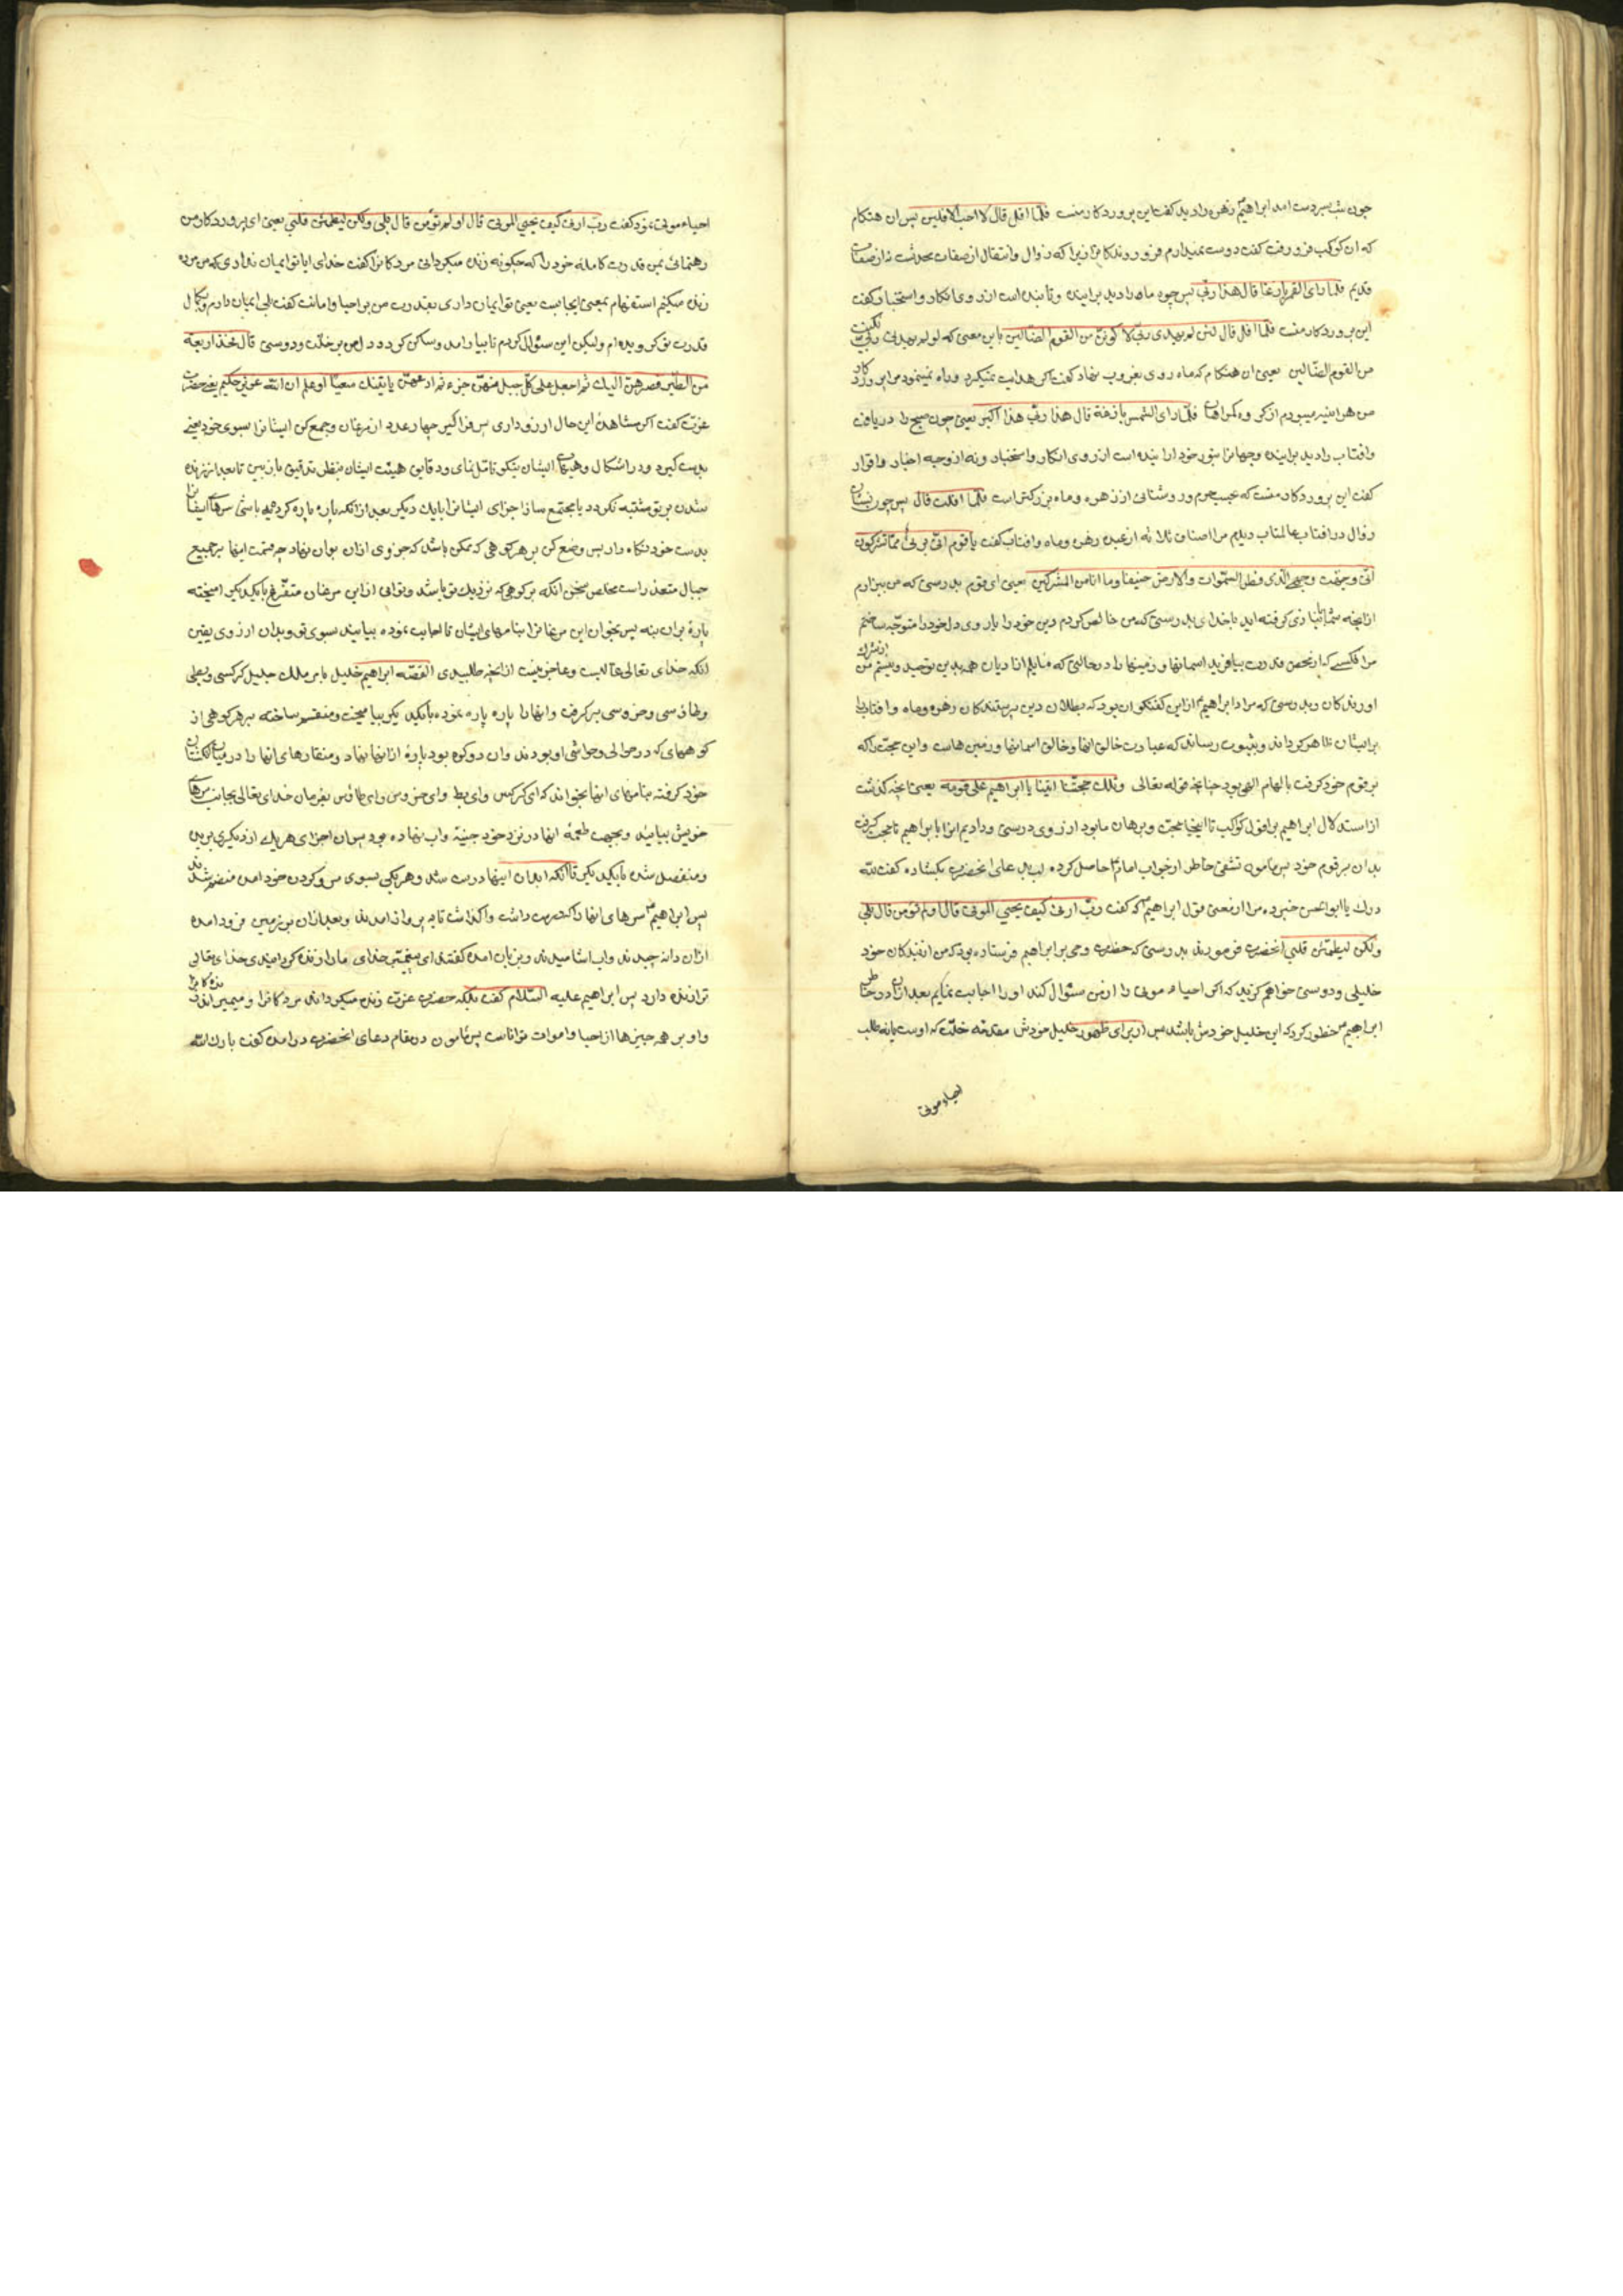 چون شب بسردست امد ابراهیم زهره را دید گفت این پروردکار منست فلمّا افل قال لا احبّ الافلین پس ان هنکام
که ان کوکب فرو رفت کفت دوست نمیدارم فرو روندکانرا زیرا که زوال و انتقال از صفات محدثست نه از صفات
قدیم فلمّا رای القمر بازغا قال هذا ربّی پس چون ماه را دید براینده و تابنده است از روی انکار و استخبار کفت
این پروردکار منست فلمّا افل قال لئن لم یهدنی ربّی لاکوننّ من القوم الضّالین باین معنی که لو لم یهدنی ربّی لکنت
من القوم الضّالین یعنی ان هنکام که ماه روی بغروب نهاد کفت اکر هدایت نمیکرد و راه نمینمود مرا پروردکار
من هر اینه میبودم از کروه کمراهان فلمّا رای الشّمس بازغة قال هذا ربّی هذا اکبر یعنی چون صبح را دریافت
و افتاب را دید براینده و جهانرا بنور خود اراینده است از روی انکار و استخبار و نه از وجه اخبار و اقرار
کفت این پروردکار منست که بحسب جرم و روشنائی از زهره و ماه بزرکتر است فلمّا افلت قال پس چون نشان
زوال در افتاب عالمتاب دید از اصناف ثلاثه از عبده زهره و ماه و افتاب کفت یا قوم انّی بریٔ ممّا تشرکون
انّی وجّهت وجهی للّذی فطر السّموات والارض حنیفا وما انا من المشرکین یعنی ای قوم بدرستی که من بیزارم
از انچه شما انبازی کرفته اید با خدای بدرستی که من خالص کردم دین خود را یا روی دل خود را متوجّه ساختم
مر انکسی که از محض قدرت بیافرید اسمانها و زمینها را در حالتی که مایلم از ادیان همه بدین توحید و نیستم من از شرک
اورندکان و بدرستی که مراد ابراهیم از این کفتکو ان بود که بطلان دین پرستندکان زهره و ماه و افتاب را
برایشان ظاهر کرداند و بثبوت رساند که عبادت خالق انها و خالق اسمانها و زمین هاست و این حجّت را که
بر قوم خود کرفت بالهام الهی بود چنانچه قوله تعالی وتلک حجّتنا اتینا یا ابراهیم علی قومه یعنی انچه کذشت
از استدلال ابراهیم بر افول کوکب تا اینجا حجّت و برهان ما بود از روی درستی و دادیم انرا بابراهیم تا حجّت کیرد
بدان بر قوم خود پس مامون تشفی خاطر از جواب امام حاصل کرده لب بدعای انحضرت بکشاده کفت لله
درک یا ابوالحسن خبر ده مرا از معنی قول ابراهیم که کفت ربّ ارنی کیف یحیی الموتی قال اولم تؤمن قال بلی
ولکن لیطمئن قلبی انحضرت فرمودند بدرستی که حضرت وحی بر ابراهیم فرستاده بود که من از بندکان خود
خلیلی و دوستی خواهم کزید که اکر احیاء موتی را از من سئوال کند او را اجابت نمایم بعد از ان در خاطر
ابراهیم خطور کرد که این خلیل خودش باشد پس از برای ظهور خلیل خودش مقدمه خلّت که اوست یا نه طلب
احیاء موتی
احیاء موتی نمود کفت ربّ ارنی کیف یحیی الموتی قال اولم تؤمن قال بلی ولکن لیطمئن قلبی یعنی ای پروردکار من
رهنمائی بمن قدرت کامله خود را که چکونه زنده میکردانی مردکانرا کفت خدای ایا تو ایمان نداری که من مرده
زنده میکنم استفهام بمعنی ایجابست یعنی تو ایمان داری بقدرت من بر احیا و اماتت کفت بلی ایمان دارم و بکمال
قدرت تو کرویده ام ولیکن این سئوال کردم تا بیارامد و ساکن کردد دل من بر خلّت و دوستی قال فخذ اربعة
من الطّیر فصرهنّ الیک ثم اجعل علی کلّ جبل منهنّ جزء ثم ادعهنّ یاتینک سعیًا واعلم ان الله عزیز حکیم یعنی حضرت
عزّت کفت اکر مشاهدهٔ این حال ارزو داری پس فرا کیر چهار عدد از مرغان و جمع کن ایشانرا بسوی خود یعنی
بدست کیر و در اشکال و هیئات ایشان نیکو تامّل نمای و دقایق هیئت ایشان بنظر تدقیق باز بین تا بعد از زنده
شدن بر تو مشتبه نکردد یا مجتمع ساز اجزای ایشانرا با یک دیکر بعد از انکه پاره پاره کرده باشی سرهای ایشانرا
بدست خود نکاه دار پس وضع کن بر هر کوهی که ممکن باشد که جزوی از ان بوان نهاد چه قسمت اینها بر جمیع
جبال متعذر است مخلص سخن انکه بر کوهی که نزدیک تو باشد و توانی از این مرغان متفرّق با یکدیکر امیخته
پارهٔ بران بنه پس بخوان این مرغانرا بنامهای ایشان تا اجابت نموده بیایند بسوی تو و بدان از روی یقین
انکه خدای تعالی غالبست و عاجز نیست از انچه طلبیدی القصّه ابراهیم خلیل بامر ملک جلیل کرکسی و بطی
و طاوسی و خروسی بر کرفت و انها را پاره پاره نموده با یکدیکر بیامیخت و منقسم ساخته بر هر کوهی از
کوههای که در حوالی و حواشی او بودند و ان دو کوه بود پارهٔ از انها نهاد و منقارهای انها را در میان انکشتان
خود کرفته بنامهای انها بخواند که ای کرکس و ای بط و ای خروس و ای طاوس بفرمان خدای تعالی بجانب سرهای
خویش بیایید و بجهت طعمهٔ انها در نزد خود جینه و اب نهاده بود پس ان اجزای هریک از دیکری بریده
و منفصل شده با یکدیکر تا انکه ابدان اینها درست شد و هر یکی بسوی سر و کردن خود امده منضم شدند
پس ابراهیم سرهای انها را که در دست داشت واکذاشت تا به پرواز امدند و بعد از ان بر زمین فرود امده
از ان دانه چیدند و اب اشامیدند و بزبان امده کفتند ای پیغمبر خدای ما را زنده کردانیدی خدای تعالی
ترا زنده دارد پس ابراهیم علیه السّلام کفت بلکه حضرت عزّت زنده میکرداند مردکانرا و میمیراند زندکانرا
و او بر همه چیزها از احیا و اموات تواناست پس مامون در مقام دعای انحضرت درامده کفت بارک الله